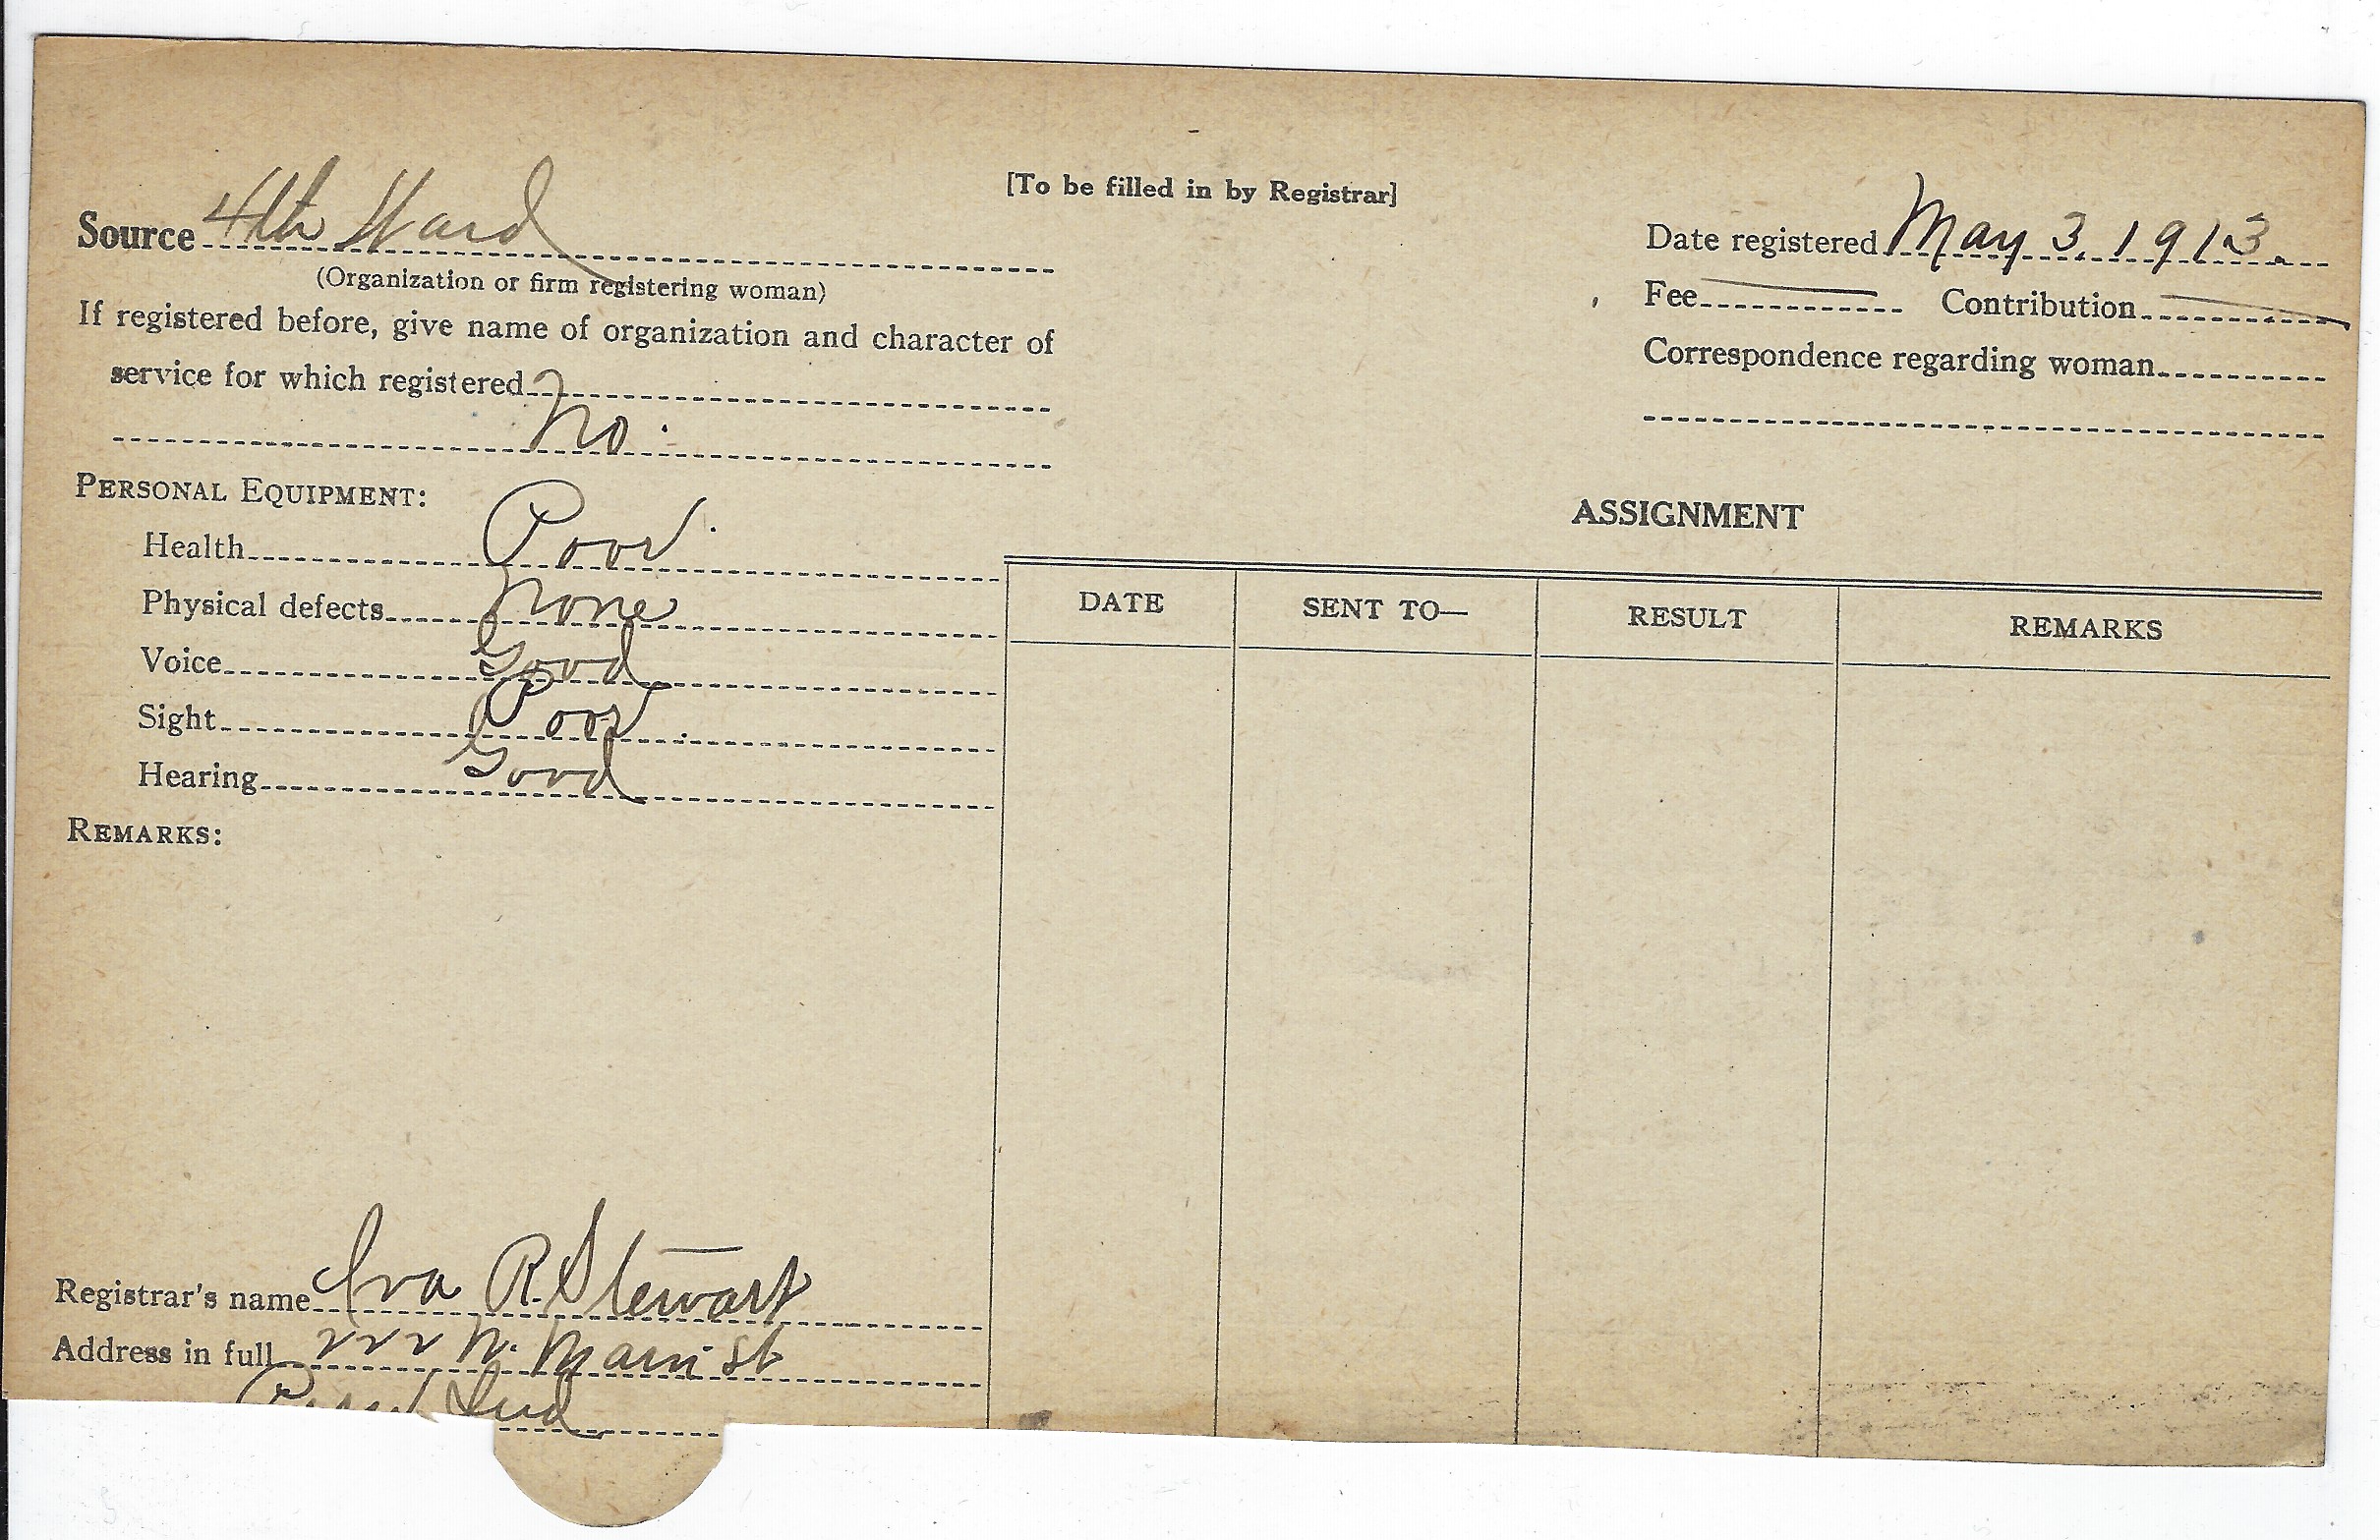 [To be filled in by Registrar]
Source 4th Ward
(Organization or firm registering woman)
If registered before, give name of organization and character of
service for which registered
No.
Date registered May 3, 1913.
Fee Contribution
Correspondence regarding woman
PERSONAL EQUIPMENT:
Health Poor.
Physical defects None
Voice Good
Sight Poor.
Hearing Good
REMARKS:
ASSIGNMENT
DATE SENT TO— RESULT REMARKS
Registrar's name Iva R. Stewart
Address in full 222 N. Main St
Peru Ind